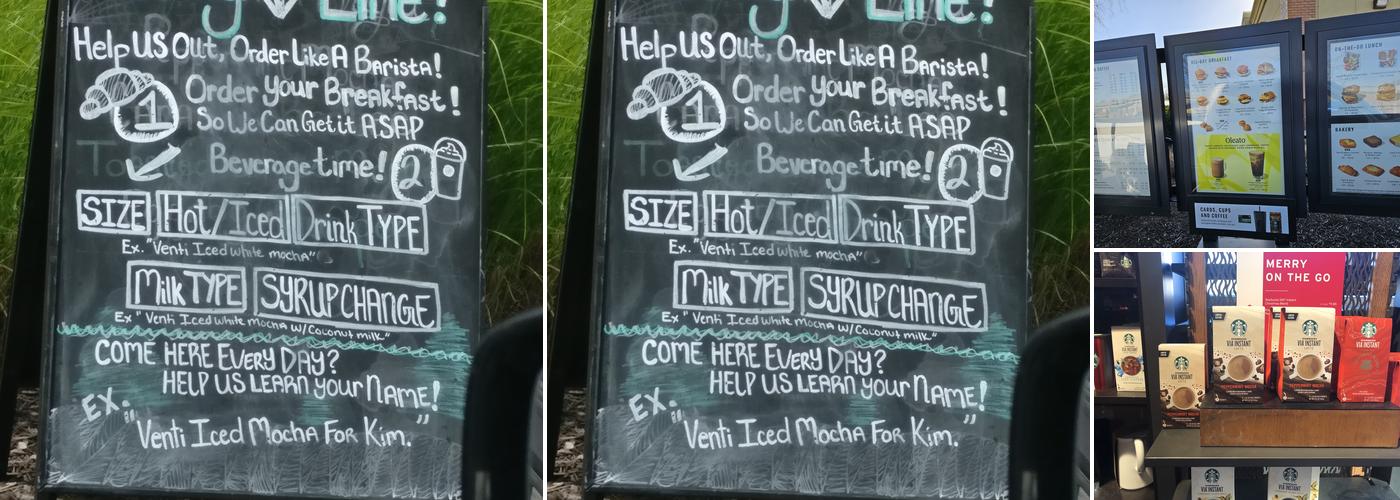 Line!
Help US Out, Order Like A Barista!
1
Order your Breakfast!
So We Can Get it ASAP
Beverage time! 2
SIZE Hot/Iced Drink TYPE
Ex. "Venti Iced white mocha"
Milk TYPE SYRUP CHANGE
Ex "Venti Iced white mocha w/Coconut milk"
COME HERE EVERY DAY?
HELP US LEARN your NAME!
EX.
"Venti Iced Mocha For Kim."
Line!
Help US Out, Order Like A Barista!
1
Order your Breakfast!
So We Can Get it ASAP
Beverage time! 2
SIZE Hot/Iced Drink TYPE
Ex. "Venti Iced white mocha"
Milk TYPE SYRUP CHANGE
Ex "Venti Iced white mocha w/Coconut milk"
COME HERE EVERY DAY?
HELP US LEARN your NAME!
EX.
"Venti Iced Mocha For Kim."
ALL-DAY BREAKFAST
ON-THE-GO LUNCH
BAKERY
Oleato
CARDS, CUPS
AND COFFEE
MERRY
ON THE GO
STARBUCKS
VIA INSTANT
STARBUCKS
VIA INSTANT
PEPPERMINT MOCHA
STARBUCKS
VIA INSTANT
PEPPERMINT MOCHA
VIA INSTANT
VIA INSTANT
VIA INSTANT